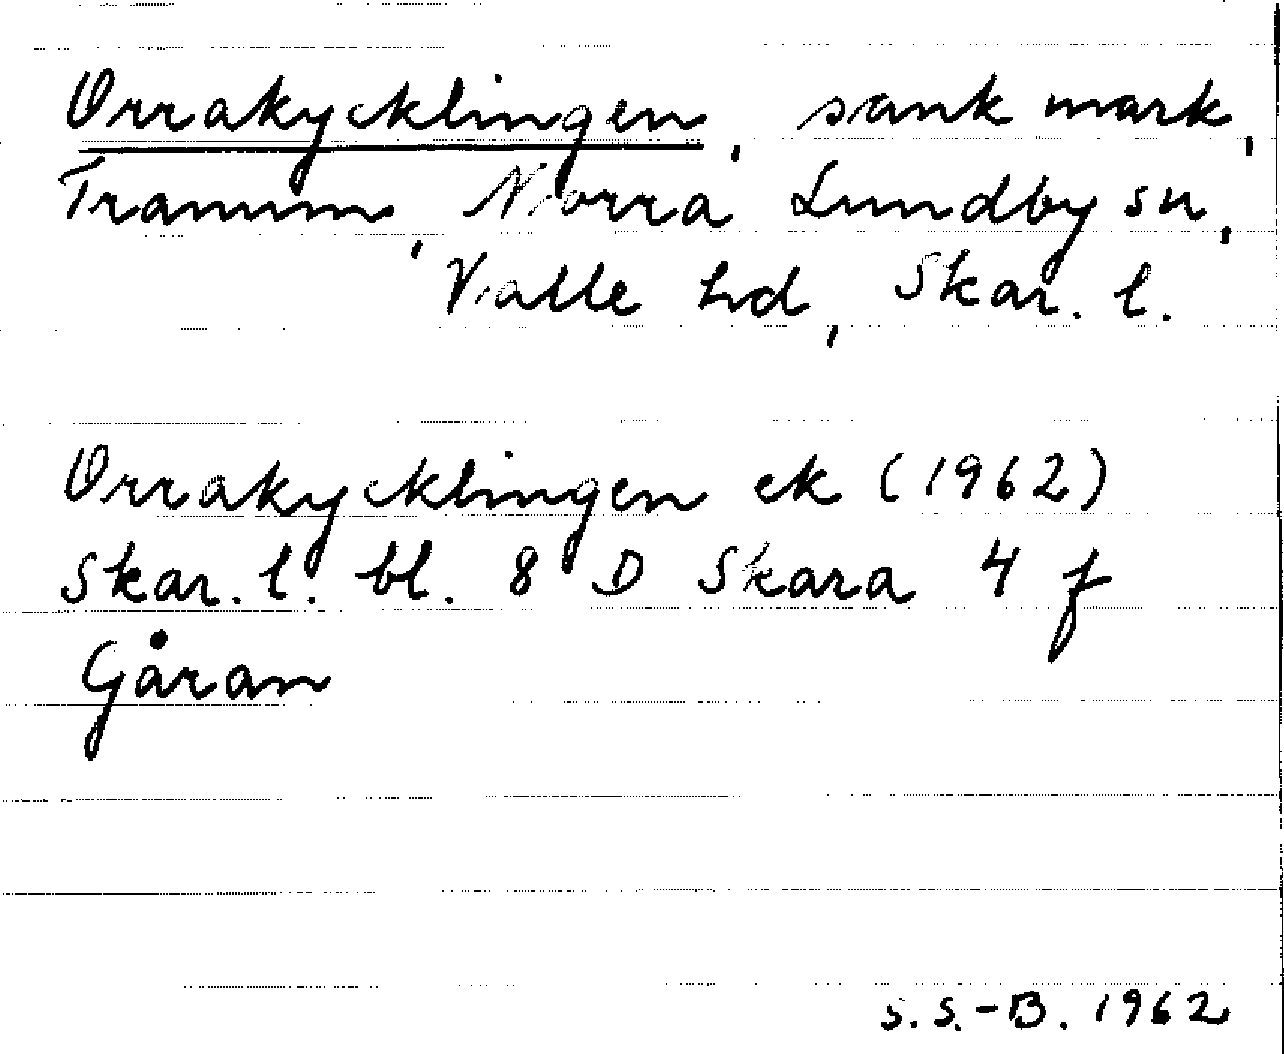 Orrakycklingen, sank mark,
Tranum, Norra Lundby sn,
Valle hd, Skar. l.
Orrakycklingen ek (1962)
Skar. l. bl. 8 D Skara 4 f
Gåran
S.S.-B. 1962